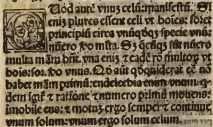 Uod autē vnuz celū: manifestū. Si
eniz plures essent celi vt hoīes: foret
principiū circa vnūqdqz specie vnū:
nūero ꝟo multa. Sz qcūqz sūt nūero
multa mām hn̄t. vna eniz & eadē rō multoꝝ vt
hois: sor. ꝟo vnus. qd aūt qd erat esse nō
habet mām primū: endelechia enim. vnum
igif & ratione & numero primū mouens
imobile ens: & motuz ergo semper & continue
vnum solum: vnum ergo solum celum.